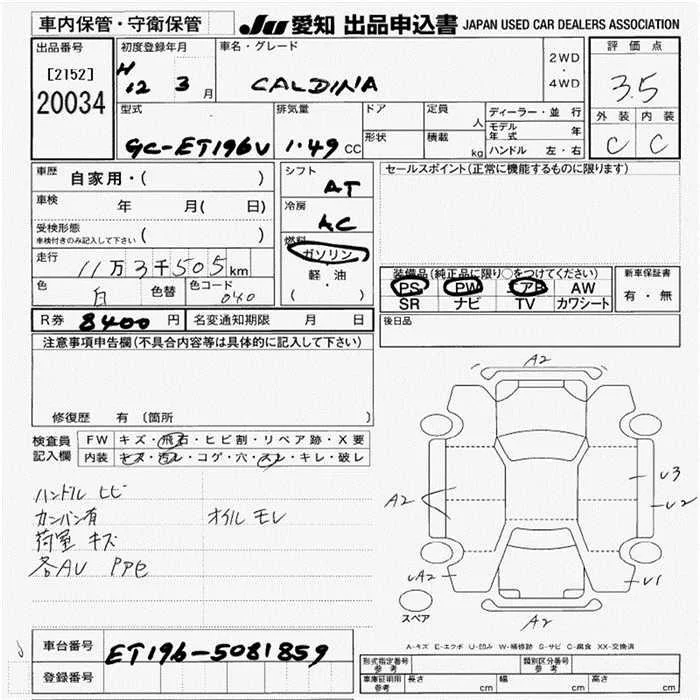 車内保管・守衛保管
JU 愛知 出品申込書 JAPAN USED CAR DEALERS ASSOCIATION
出品番号
[2152]
20034
初度登録年月
H 12 3 月
車名・グレード
CALDINA
2WD
・
4WD
評価点
3.5
外装 内装
C C
型式
GC-ET196V
排気量
1.49 CC
ドア
形状
定員 人
積載 kg
ディーラー・並行
モデル年式 年
ハンドル 左・右
車歴 自家用・( )
車検 年 月( 日)
受検形態
車検付きのみ記入して下さい ( )
走行 11万3千505km
色 白 色替 色コード 040
シフト
AT
冷房
AC
燃料
ガソリン
軽油
( ・ )
セールスポイント(正常に機能するものに限ります)
装備品(純正品に限り○をつけてください)
PS PW AW
SR ナビ TV カワシート
新車保証書
有・無
R券 8400 円 名変通知期限 月 日
後日品
注意事項申告欄(不具合内容等は具体的に記入して下さい)
修復歴 有 (箇所 )
検査員
記入欄
FW キズ・飛石・ヒビ割・リペア跡・X要
内装 キズ・汚レ・コゲ・穴・スレ・キレ・破レ
ハンドル ヒビ
カンバン有 オイル モレ
荷室 キズ
A2
A2
U3
U2
U1
A2
スペア
A-キズ E-エクボ U-凹み W-補修跡 S-サビ C-腐食 XX-交換済
車台番号 ET196-5081859
登録番号
形式指定番号
参考
類別区分番号
参考
車庫証明用
参考
長さ cm 幅 cm 高さ cm